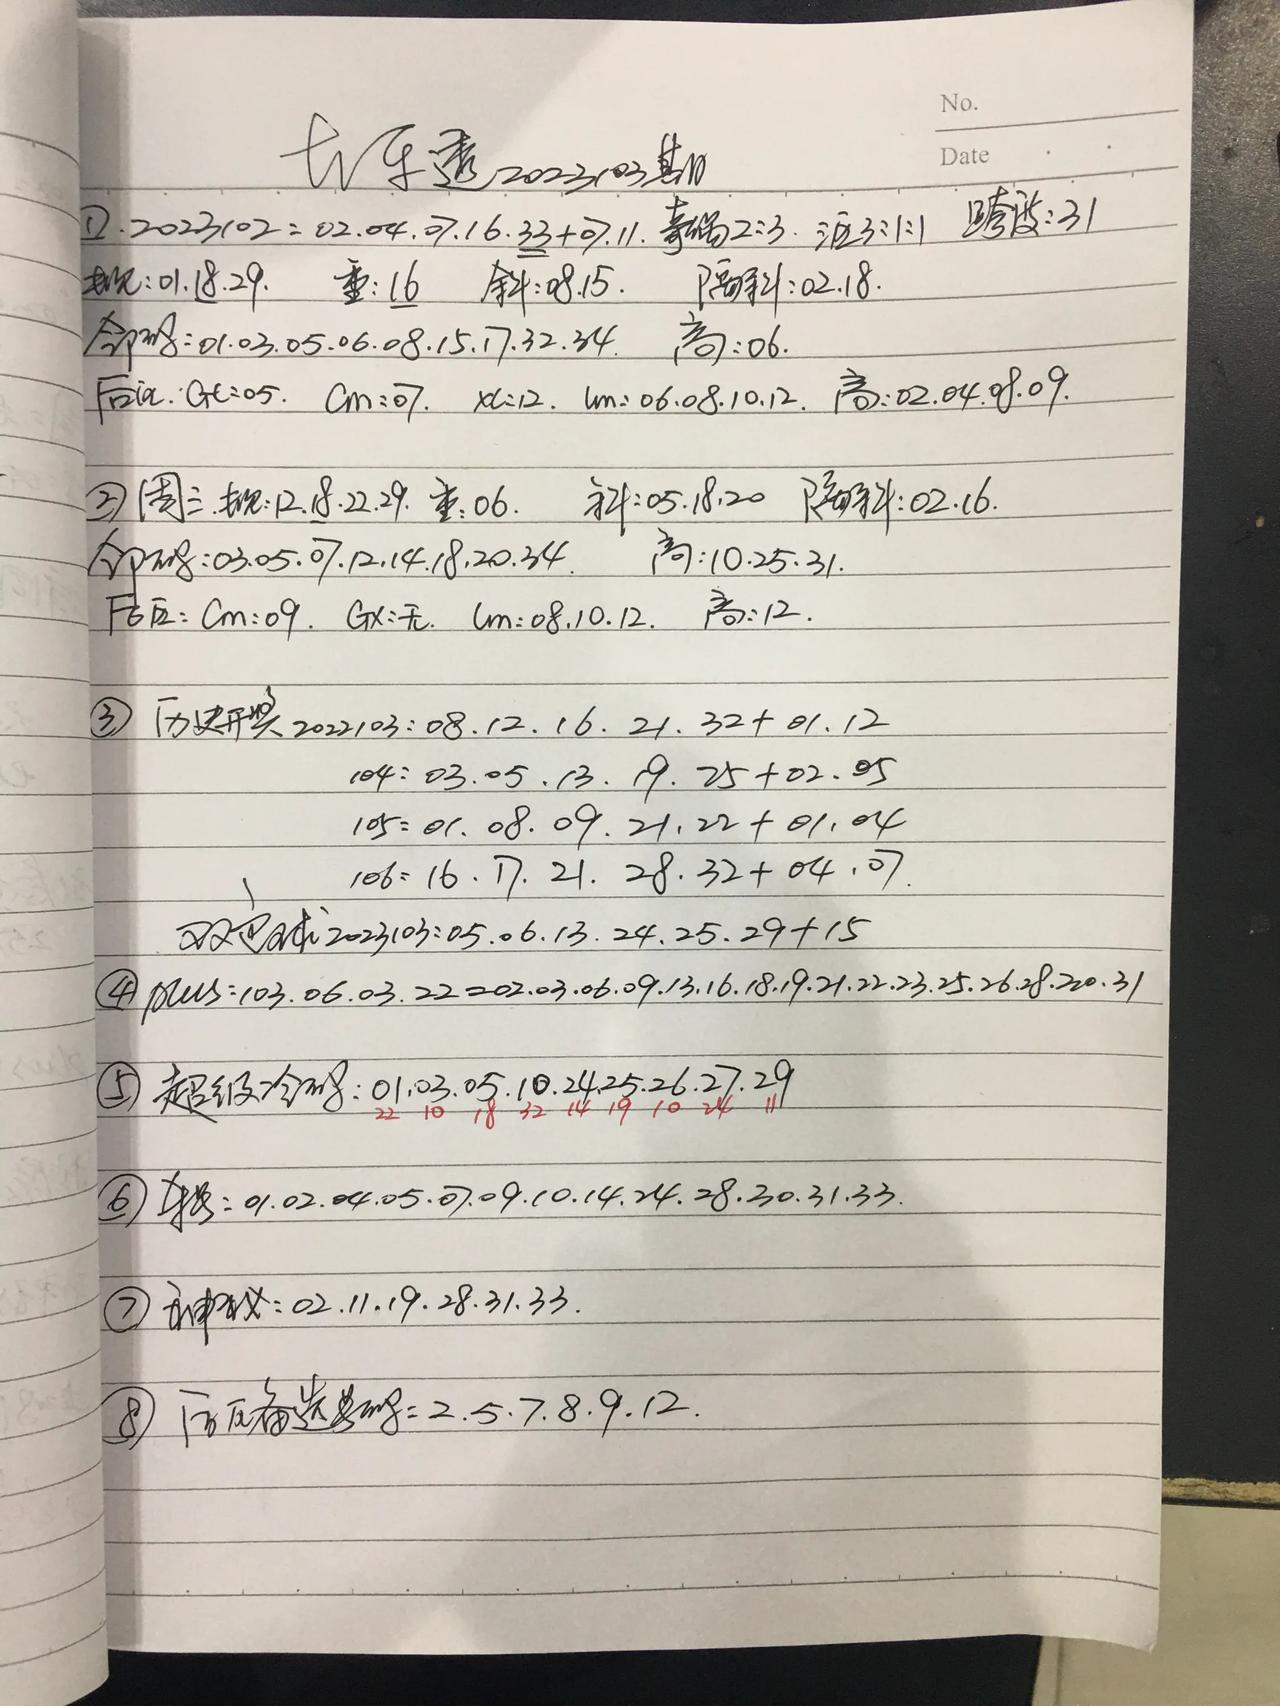 No.
Date
大乐透2023103期
①.2023102=02.04.07.16.33+07.11. 奇偶2:3. 三区3:1:1 跨度:31
规:01.18.29. 重:16 斜:08.15. 隔期斜:02.18.
邻码:01.03.05.06.08.15.17.32.34. 高:06.
后区. GX:05. Cm:07. XL:12. Lm:06.08.10.12. 高:02.04.08.09.
②周三.规:12.18.22.29. 重:06. 斜:05.18.20 隔期斜:02.16.
邻码:03.05.07.12.14.18.20.34. 高:10.25.31.
后区: Cm:09. GX:无. Lm:08.10.12. 高:12.
③ 历史开奖2022103:08.12.16.21.32+01.12
104:03.05.13.19.25+02.05
105=01.08.09.21.22+01.04
106=16.17.21.28.32+04.07.
双色球2023103:05.06.13.24.25.29+15
④ plus:103.06.03.22=02.03.06.09.13.16.18.19.21.22.23.25.26.28.220.31
⑤ 超级冷码:01.03.05.10.24.25.26.27.29
22 10 18 32 14 19 10 24 11
⑥ :01.02.04.05.07.09.10.14.24.28.30.31.33.
⑦ 神秘:02.11.19.28.31.33.
⑧ 后区备选号码=2.5.7.8.9.12.